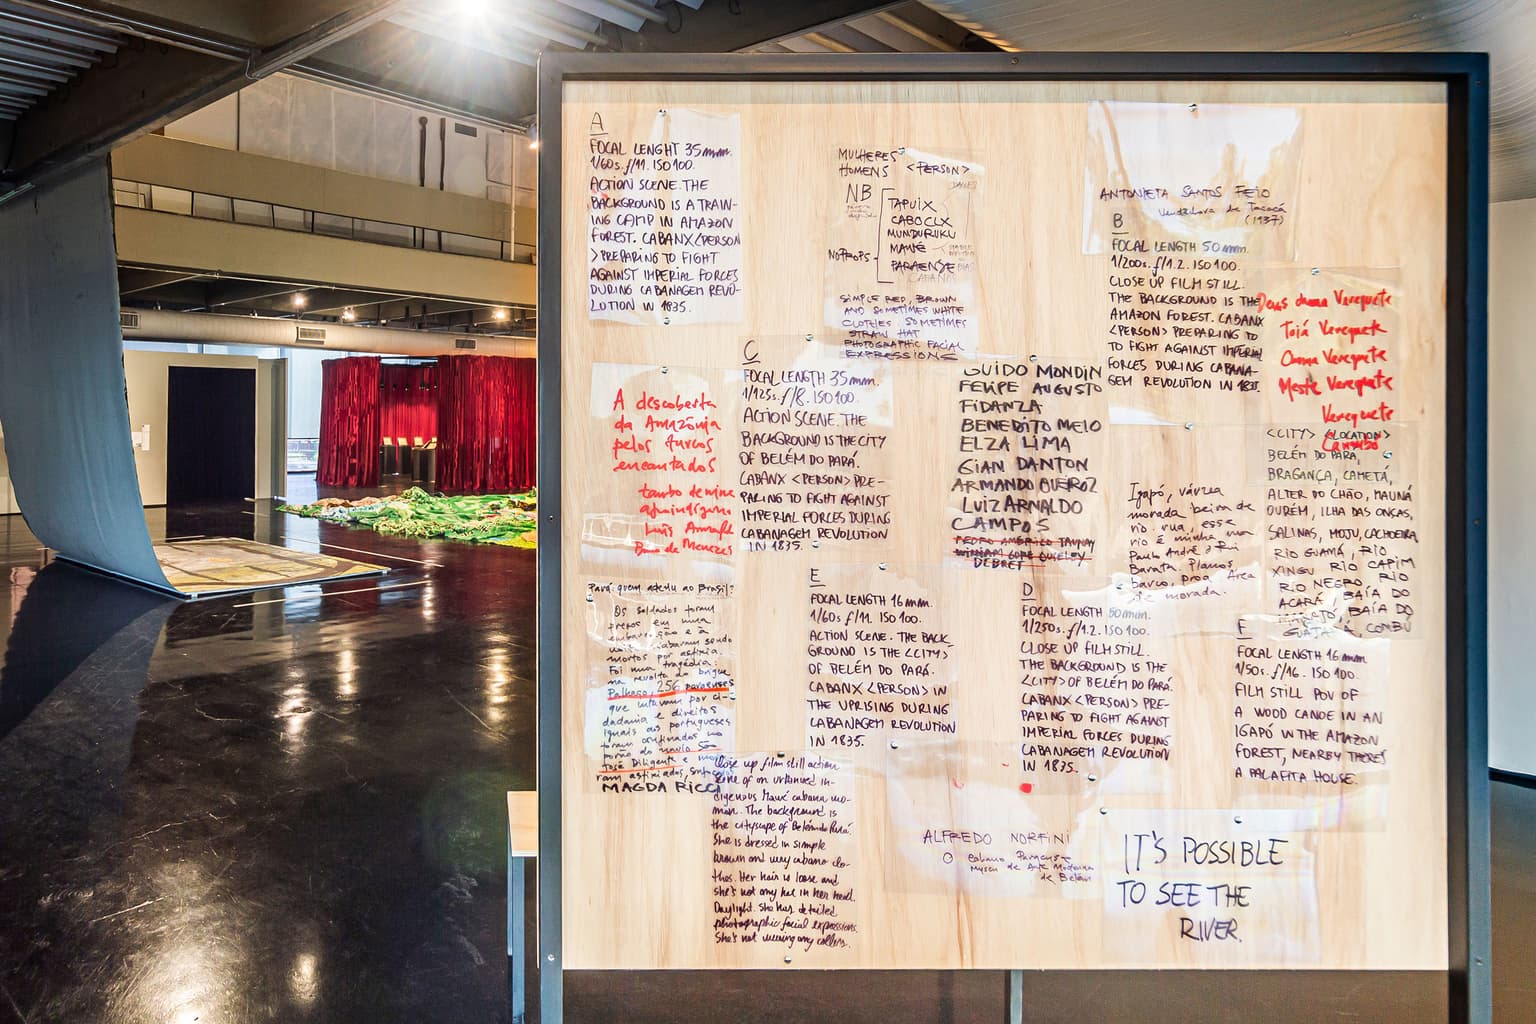 A
FOCAL LENGHT 35mm.
1/60s. f/11. ISO 100.
ACTION SCENE. THE
BACKGROUND IS A TRAIN-
ING CAMP IN AMAZON
FOREST. CABANX <PERSON
> PREPARING TO FIGHT
AGAINST IMPERIAL FORCES
DURING CABANAGEM REVO-
LUTION IN 1835.
MULHERES
HOMENS <PERSON>
NB
TAPUIX
CABOCLX
MUNDURUKU
MAWÉ
PARAENSE
NOTROPS
SIMPLE RED, BROWN
AND SOMETIMES WHITE
CLOTHES SOMETIMES
STRAW HAT
PHOTOGRAPHIC FACIAL
EXPRESSIONS
ANTONIETA SANTOS FEIO
Vendedora de Tacacá
(1937)
B
FOCAL LENGTH 50mm.
1/200s. f/1.2. ISO 100.
CLOSE UP FILM STILL.
THE BACKGROUND IS THE
AMAZON FOREST. CABANX
<PERSON> PREPARING TO
TO FIGHT AGAINST IMPERIAL
FORCES DURING CABANA-
GEM REVOLUTION IN 1835.
Verequete
Toiá Verequete
Ouma Verequete
Mestre Verequete
Verequete
A descoberta
da Amazônia
pelos turcos
encantados
tambo de mina
Luis
de Menezes
C
FOCAL LENGTH 35mm.
1/125s. f/8. ISO 100.
ACTION SCENE. THE
BACKGROUND IS THE CITY
OF BELÉM DO PARÁ.
CABANX <PERSON> PRE-
PARING TO FIGHT AGAINST
IMPERIAL FORCES DURING
CABANAGEM REVOLUTION
IN 1835.
GUIDO MONDIN
FELIPE AUGUSTO
FIDANZA
BENEDITO MELO
ELZA LIMA
GIAN DANTON
ARMANDO QUEIROZ
LUIZ ARNALDO
CAMPOS
PEDRO AMÉRICO TAUNAY
WILLIAM GORE OUSELEY
DEBRET
Igapó, várzea
morada beira de
rio. rua, esse
rio é minha rua
Paulo André & Rui
Barata. Planos
barco, proa. Área
e morada.
<CITY> <LOCATION>
BELÉM DO PARÁ,
BRAGANÇA, CAMETÁ,
ALTER DO CHÃO, MAUNÁ
OURÉM, ILHA DAS ONÇAS,
SALINAS, MOJU, CACHOEIRA,
RIO GUAMÁ, RIO
XINGU RIO CAPIM
RIO NEGRO, RIO
ACARÁ, BAÍA DO
BAÍA DO
GUAJARÁ, COMBÚ
Pará: quem aderiu ao Brasil?
Os soldados foram
presos em uma
embarcação e a
acabaram sendo
mortos por asfixia.
Foi uma tragédia:
na revolta do brigue
Palhaço, 256 paraenses
que lutavam por ci-
dadania e direitos
iguais aos portugueses
foram confinados no
porão do navio São
José Diligente e
ram asfixiados,
MAGDA RICCI
E
FOCAL LENGTH 16mm.
1/60s f/11. ISO 100.
ACTION SCENE. THE BACK
GROUND IS THE <CITY>
OF BELÉM DO PARÁ.
CABANX <PERSON> IN
THE UPRISING DURING
CABANAGEM REVOLUTION
IN 1835.
D
FOCAL LENGTH 50mm.
1/250s. f/1.2. ISO 100.
CLOSE UP FILM STILL.
THE BACKGROUND IS THE
<CITY> OF BELÉM DO PARÁ.
CABANX <PERSON> PRE-
PARING TO FIGHT AGAINST
IMPERIAL FORCES DURING
CABANAGEM REVOLUTION
IN 1835.
F
FOCAL LENGTH 16mm.
1/50s. f/16. ISO 100.
FILM STILL POV OF
A WOOD CANOE IN AN
IGAPÓ IN THE AMAZON
FOREST, NEARBY THERE'S
A PALAFITA HOUSE.
Close up film still action
scene of on unknwed in-
digenous Mawé cabana wo-
man. The background is
the cityscape of Belém do Pará.
She is dressed in simple
brown and urucum clo-
thes. Her hair is loose and
she's not any hat in her head.
Daylight. She has detailed
photographic facial expressions.
She's not wearing any collars.
ALFREDO NORFINI
O Cabano Paraense
Museu de Arte Moderna
de Belém
IT'S POSSIBLE
TO SEE THE
RIVER.